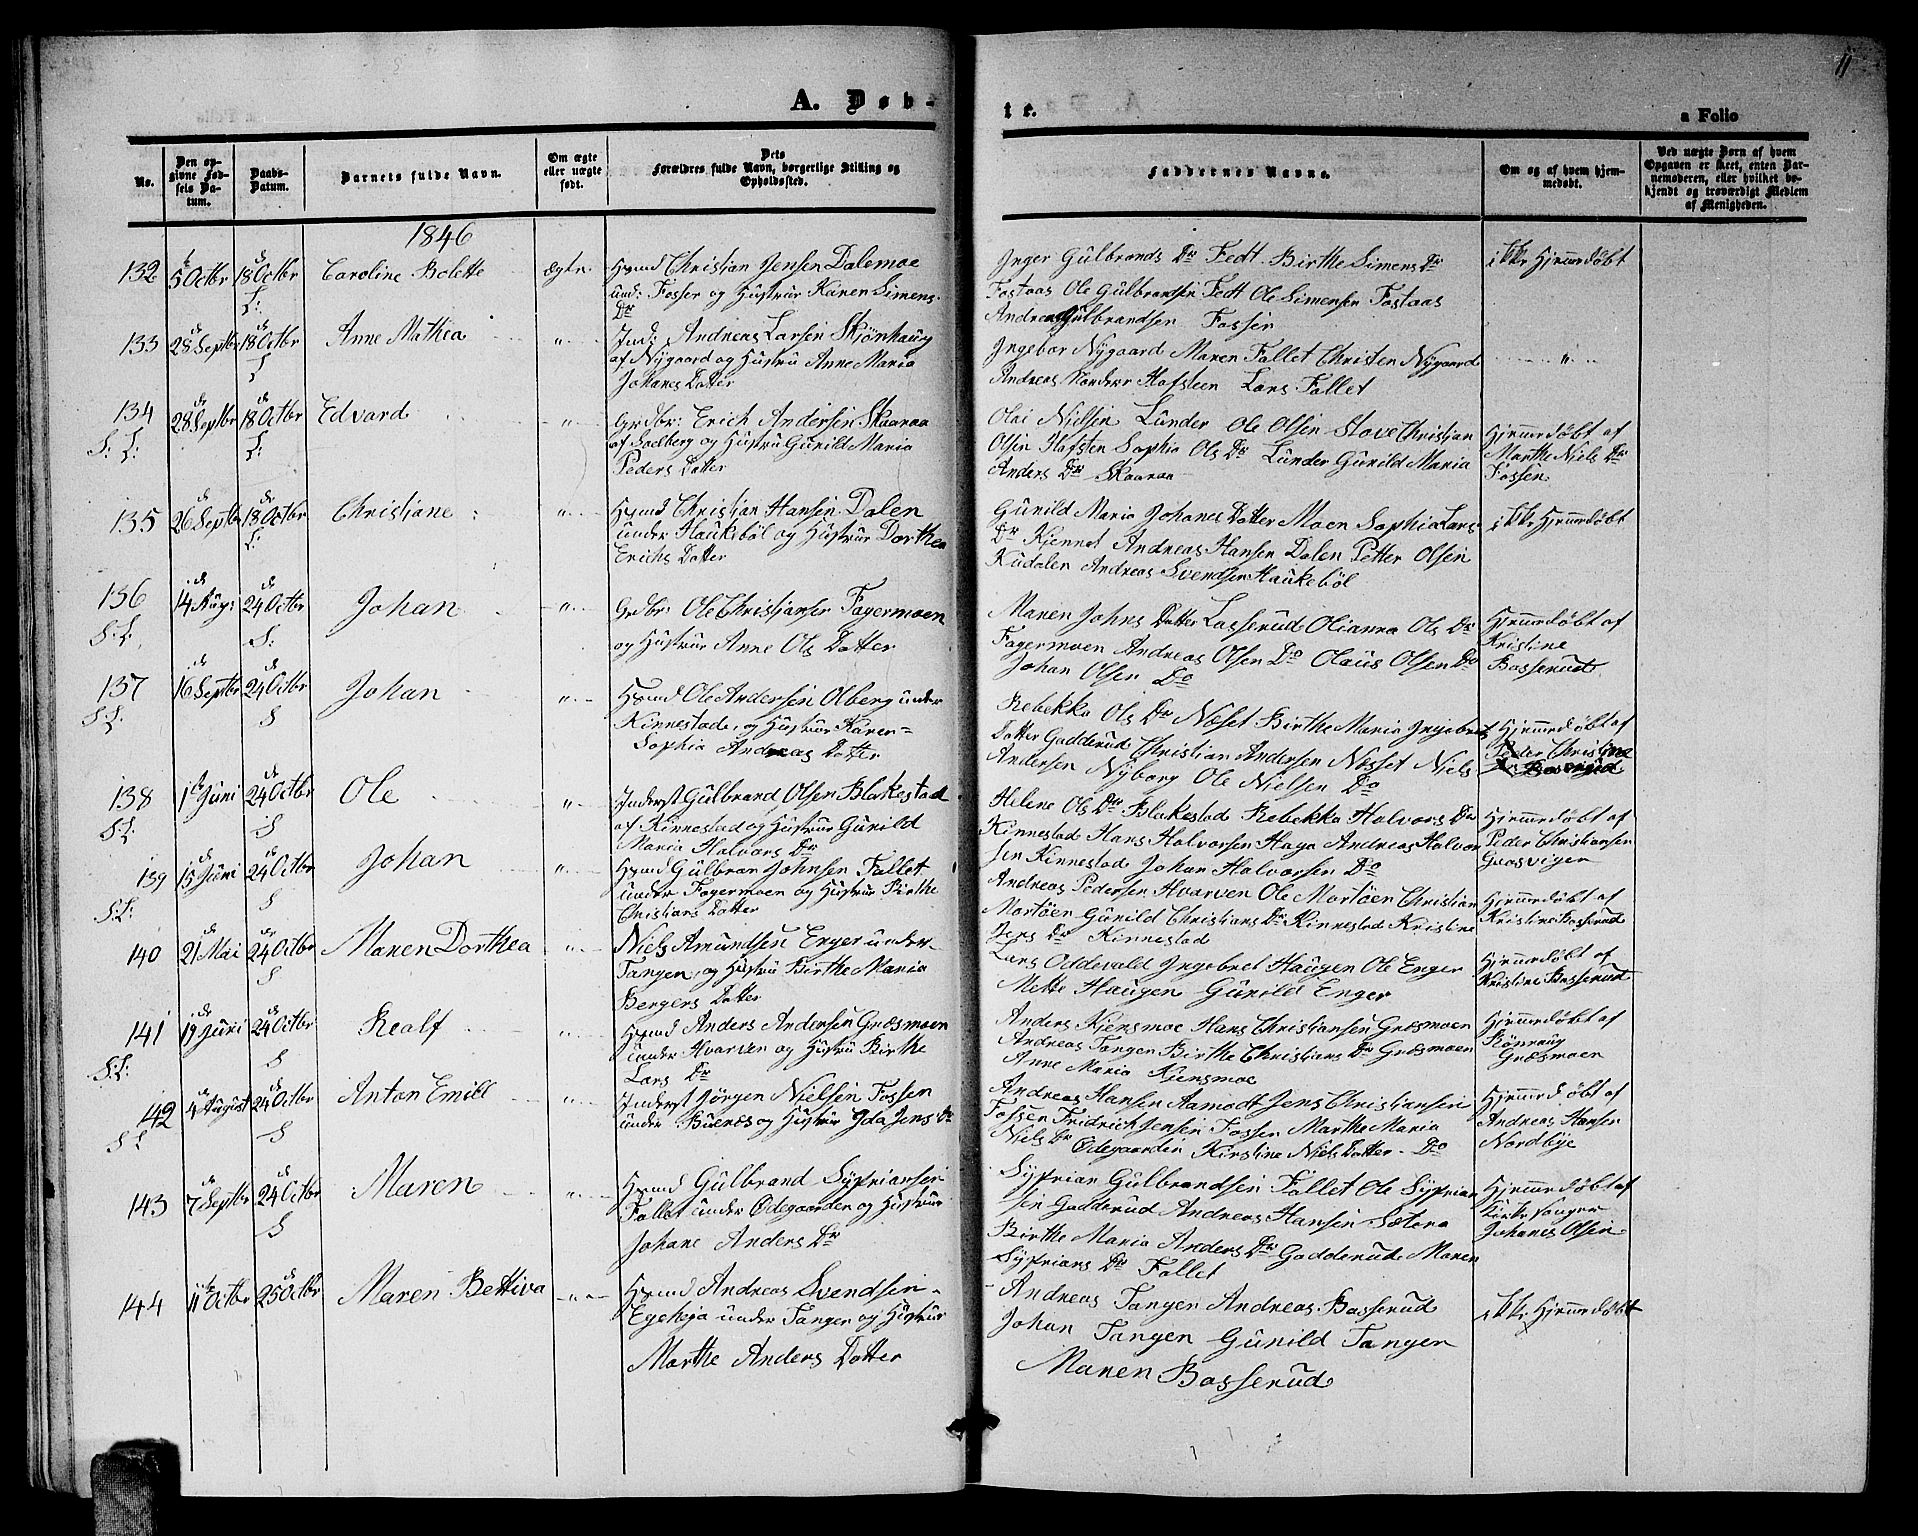 A. Døb-
No.
Den opgivne Fødsels Datum.
Daabs-Datum.
Barnets fulde Navn.
Om ægte eller uægte født.
Dets Forældres fulde Navn, borgerlige Stilling og Opholdssted.
1846
132 5 Octbr 18 Octbr Caroline Bolette ægte
Christian Jensen Dalemoe
und: Fosser og Hustrue Karen Simens
Dr
133 28 Septbr 18 Octbr Anne Mathea "
Ind: Andreas Larsen Skjønhaug
af Nygaard og Hustru Anne Maria
Johanes Datter
134 28 Septbr 18 Octbr Edvard "
S: L:
Grdbr: Erich Andersen Skaaraa
og Hustrue Gunild Maria
Peders Datter
135 26 Septbr 18 Octbr Christiane "
Christian Hansen Dalen
under Haukebøl og Hustrue Dorthea
Erichs Datter
136 14 Aug: 24 Octbr Johan "
S: L:
Grdbr: Ole Christiansen Fagermoen
og Hustrue Anne Ols Datter
137 16 Septbr 24 Octbr Johan "
S: L:
Ole Andersen Olberg under
Kinnestad, og Hustrue Karen=
Sophia Andreas Datter
138 1 Juni 24 Octbr Ole "
S: L:
Inderst Gulbrand Olsen Blakestad
af Kinnestad og Hustrue Gunild
Maria Halvors Dr
139 15 Juni 24 Octbr Johan "
S: L:
Gulbran Johnsen Fallet
under Fagermoen og Hustrue Birthe
Christians Datter
140 21 Mai 24 Octbr Maren Dorthea "
Niels Amundsen Enger under
Tangen, og Hustru Birthe Maria
Bergers Datter
141 19 Juni 24 Octbr Realf "
S: L:
Anders Andersen Græsmoen
under Hvarven og Hustru Birthe
Lars Dr
142 4 August 24 Octbr Anton Emill "
S L
Inderst Jørgen Nielsen Fossen
under Buenes og Hustrue Ida Jens Dr
143 7 Septbr 24 Octbr Maren "
Gulbrand Syprianse
Fallet under Ødegaarden og Hustrue
Johane Anders Dr
144 11 Octbr 25 Octbr Maren Bettiva "
Andreas Svendsen
Egeheja under Tangen og Hustrue
Marthe Anders Datter
te.
a Folio
11
Faddernes Navne.
Om og af hvem hjemmedøbt.
Ved uægte Børn af hvem Opgaven er skeet, enten Barnemoderen, eller hvilket bekjendt og troværdigt Medlem af Menigheden.
Inger Gulbrands Dr Fedt Birthe Simens Dr
Fostaas Ole Gulbrandsen Fedt Ole Simensen Fostaas
Andreas Gulbrandsen Fossen
ikke Hjemmedøbt
Ingebor Nygaard Maren Fallet Christen Nygaard
Andreas Nordere Hofsteen Lars Fallet
"
Olai Nielsen Lunder Ole Olsen Stove Christian
Olsen Hafsten Sophia Ols Dr Lunder Gunild Maria
Anders Dr Skaaraa
Hjemmedøbt af
Marthe Niels Dr
Fossen
Gunild Maria Johanes Datter Moen Sophia Lars
Dr Kjennet Andreas Hansen Dalen Petter Olsen
Kudalen Andreas Svendsen Haukebøl
ikke Hjemmedøbt
Maren Johns Datter Lasserud Olianna Ols Dr
Fagermoen Andreas Olsen Do Olaus Olsen Do
Johan Olsen Do
Hjemmedøbt af
Kristine
Basserud
Rebekka Ols Dr Næset Birthe Maria Ingebret
Datter Gadderud Christian Andersen Næsset Niels
Andersen Nyborg Ole Nielsen Do
Hjemmedøbt af
Peder Christians
Helene Ols Dr Blakestad Rebekka Halvors Dr
Kinnestad Hans Halvorsen Haga Andreas Halvor
sen Kinnestad Johan Halvorsen Do
Hjemmedøbt af
Peder Christiansen
Gaasvigen
Andreas Pedersen Hvarven Ole Mortøen Christian
Mortøen Gunild Christians Dr Kinnestad Kristine
Jens Dr Kinnestad
Hjemmedøbt af
Kristine Basserud
Lars Oddevald Ingebret Haugen Ole Enger
Mette Haugen Gunild Enger
Hjemmedøbt af
Kristine Basserud
Anders Kjensmoe Hans Christiansen Græsmoen
Andreas Tangen Birthe Christians Dr Græsmoen
Anne Maria Kjensmoe
Hjemmedøbt af
Rønnaug
Græsmoen
Andreas Hansen Aamodt Jens Christiansen
Fossen Fridrich Jensen Fossen Marthe Maria
Niels Dr Ødegaarden Kirstine Niels Datter Do
Hjemmedøbt af
Andreas Hansen
Nordbye
Syprian Gulbrandsen Fallet Ole Syprian
sen Gadderud Andreas Hansen Sætera
Birthe Maria Anders Dr Gadderud Maren
Syprians Dr Fallet
Hjemmedøbt af
Kirkesanger
Johanes Olsen
Andreas Tangen Andreas Basserud
Johan Tangen Gunild Tangen
Maren Basserud
ikke Hjemmedøbt